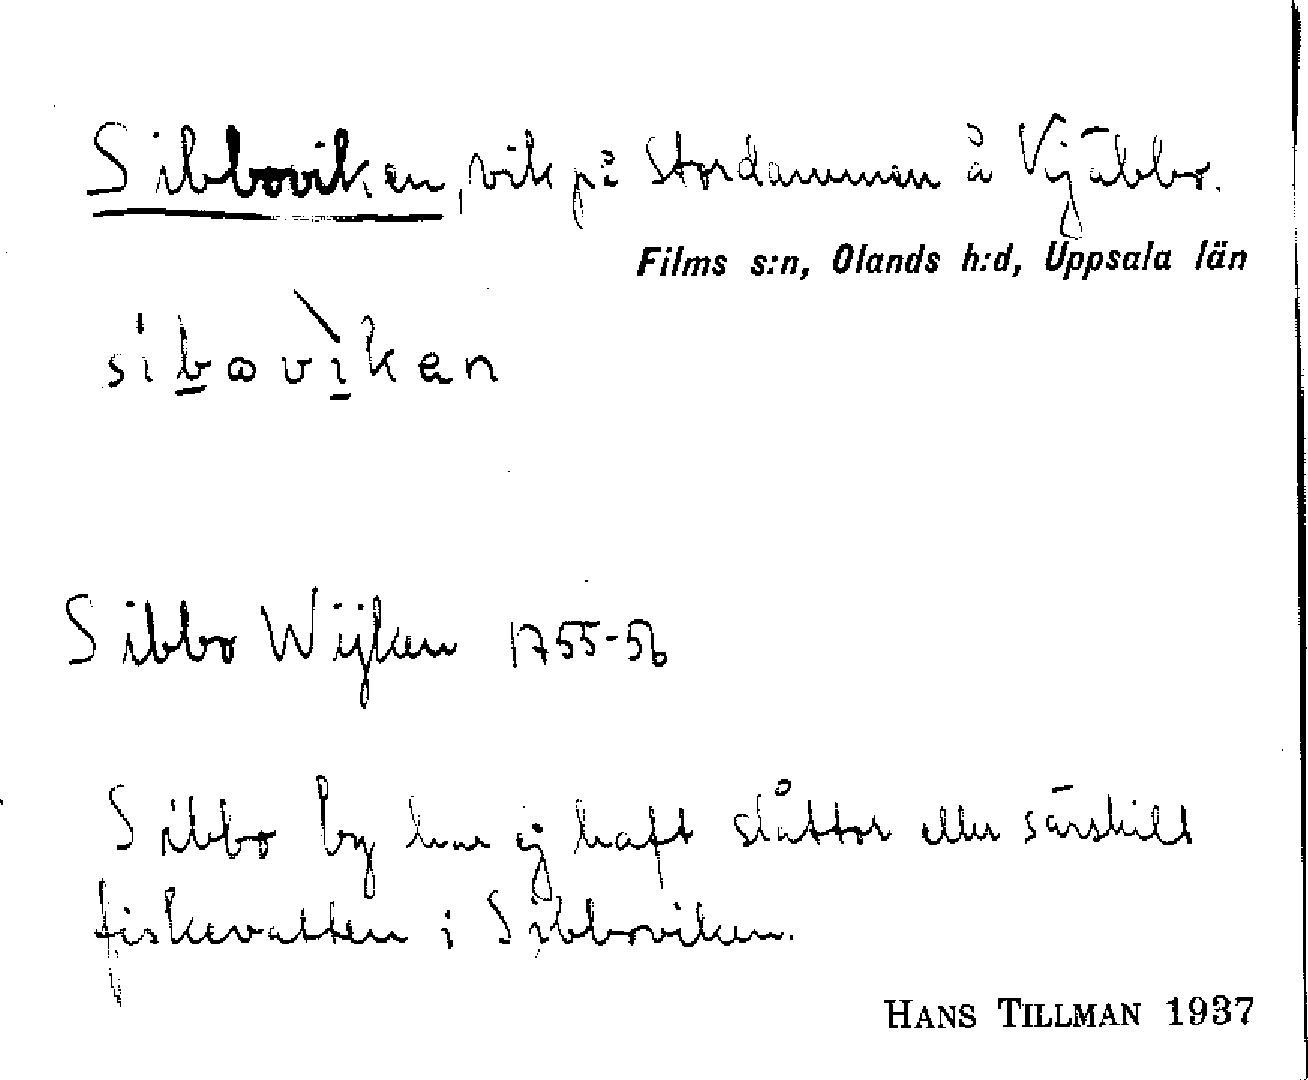 Sibboviken, vik på Stordammen å Vjäbbo.
Films s:n, Olands h:d, Uppsala län
sibovìken
Sibbo Wijken 1755-56
Sibbo by har ej haft slåttor eller särskilt
fiskevatten i Sibboviken.
HANS TILLMAN 1937